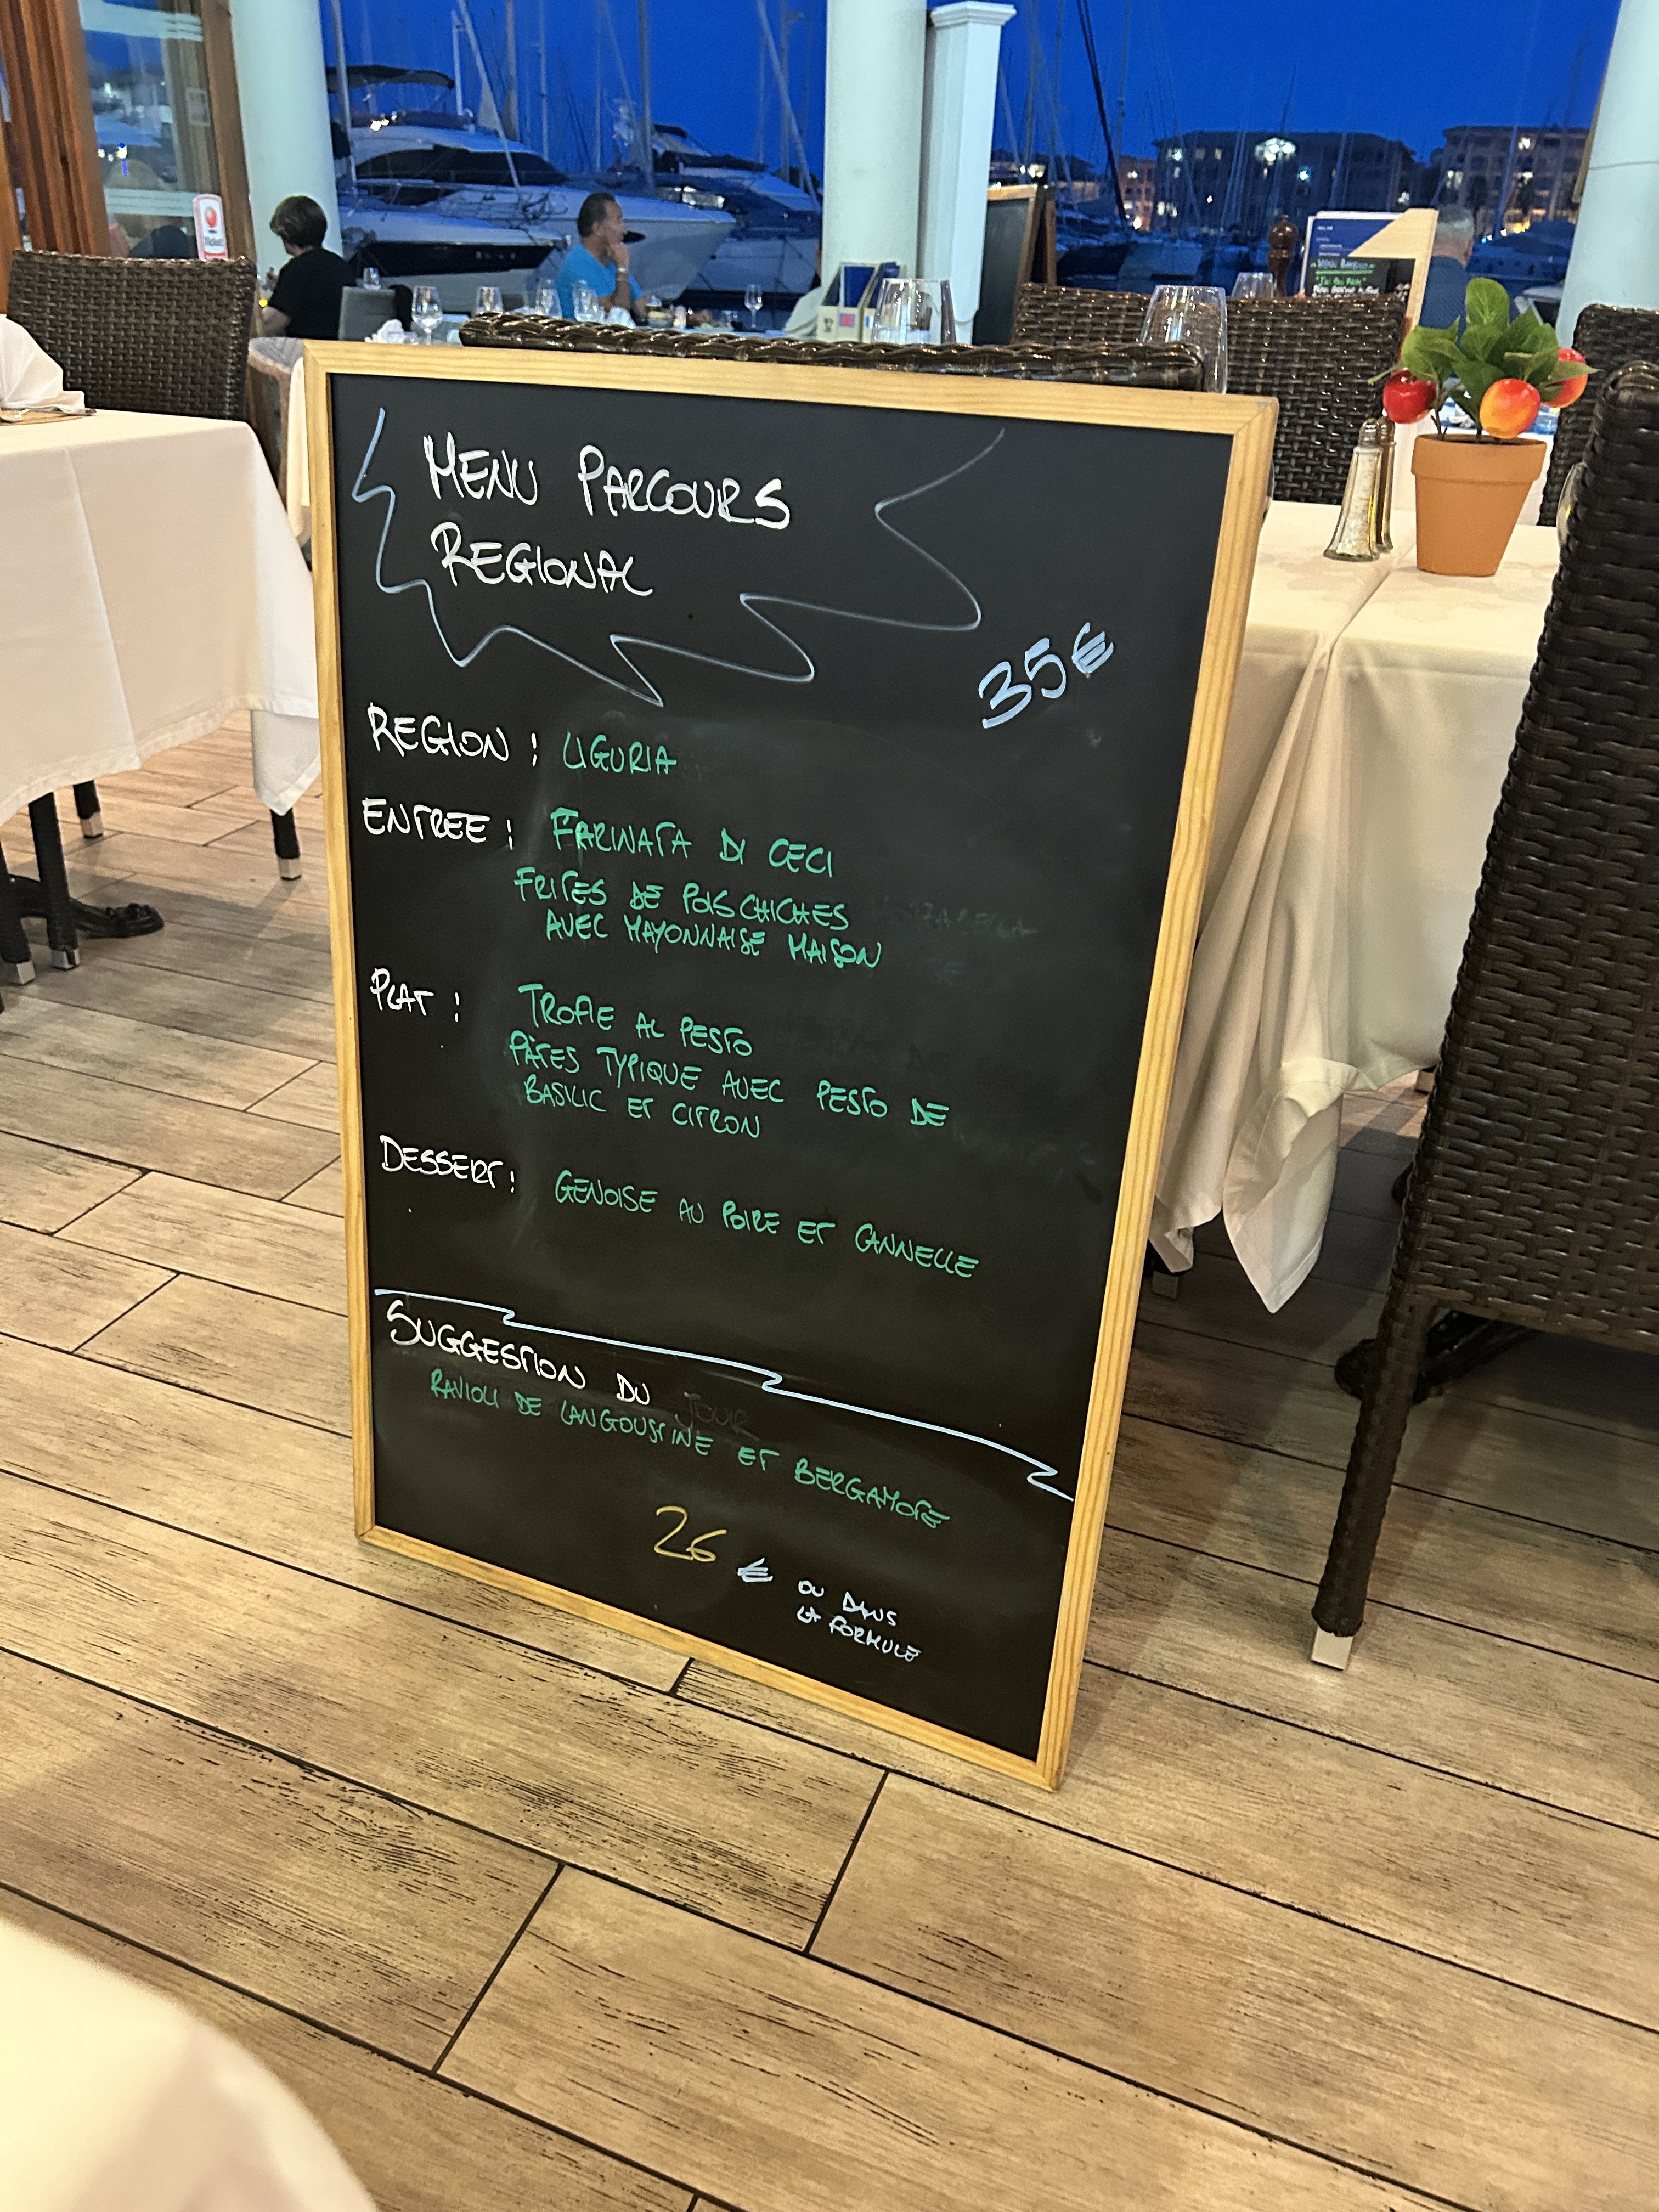 MENU PARCOURS
REGIONAL
35€
REGION : LIGURIA
ENTREE : FARINATA DI CECI
FRITES DE POIS CHICHES
AVEC MAYONNAISE MAISON
PLAT : TROFIE AL PESTO
PÂTES TYPIQUE AVEC PESTO DE
BASILIC ET CITRON
DESSERT : GENOISE AU POIRE ET CANNELLE
SUGGESTION DU JOUR
RAVIOLI DE LANGOUSTINE ET BERGAMOTE
26 € OU DANS
LA FORMULE